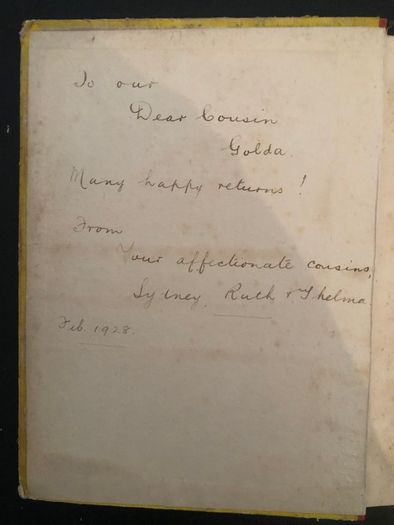 To our
Dear Cousin
Golda.
Many happy returns!
From
Your affectionate cousins,
Sydney, Ruth & Thelma
Feb. 1928.